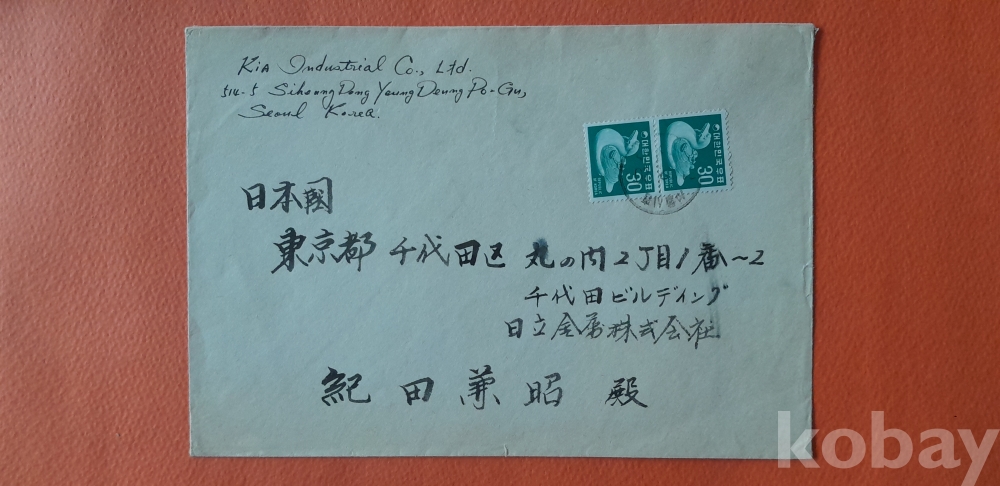 Kia Industrial Co., Ltd.
514-5 Siheung Dong Yeung Deung Po-Gu,
Seoul Korea.
대한민국우표
30
대한민국우표
30
日本國
東京都 千代田区 丸の内2丁目1番~2
千代田ビルディング
日立金属株式会社
紀田兼昭 殿
kobay